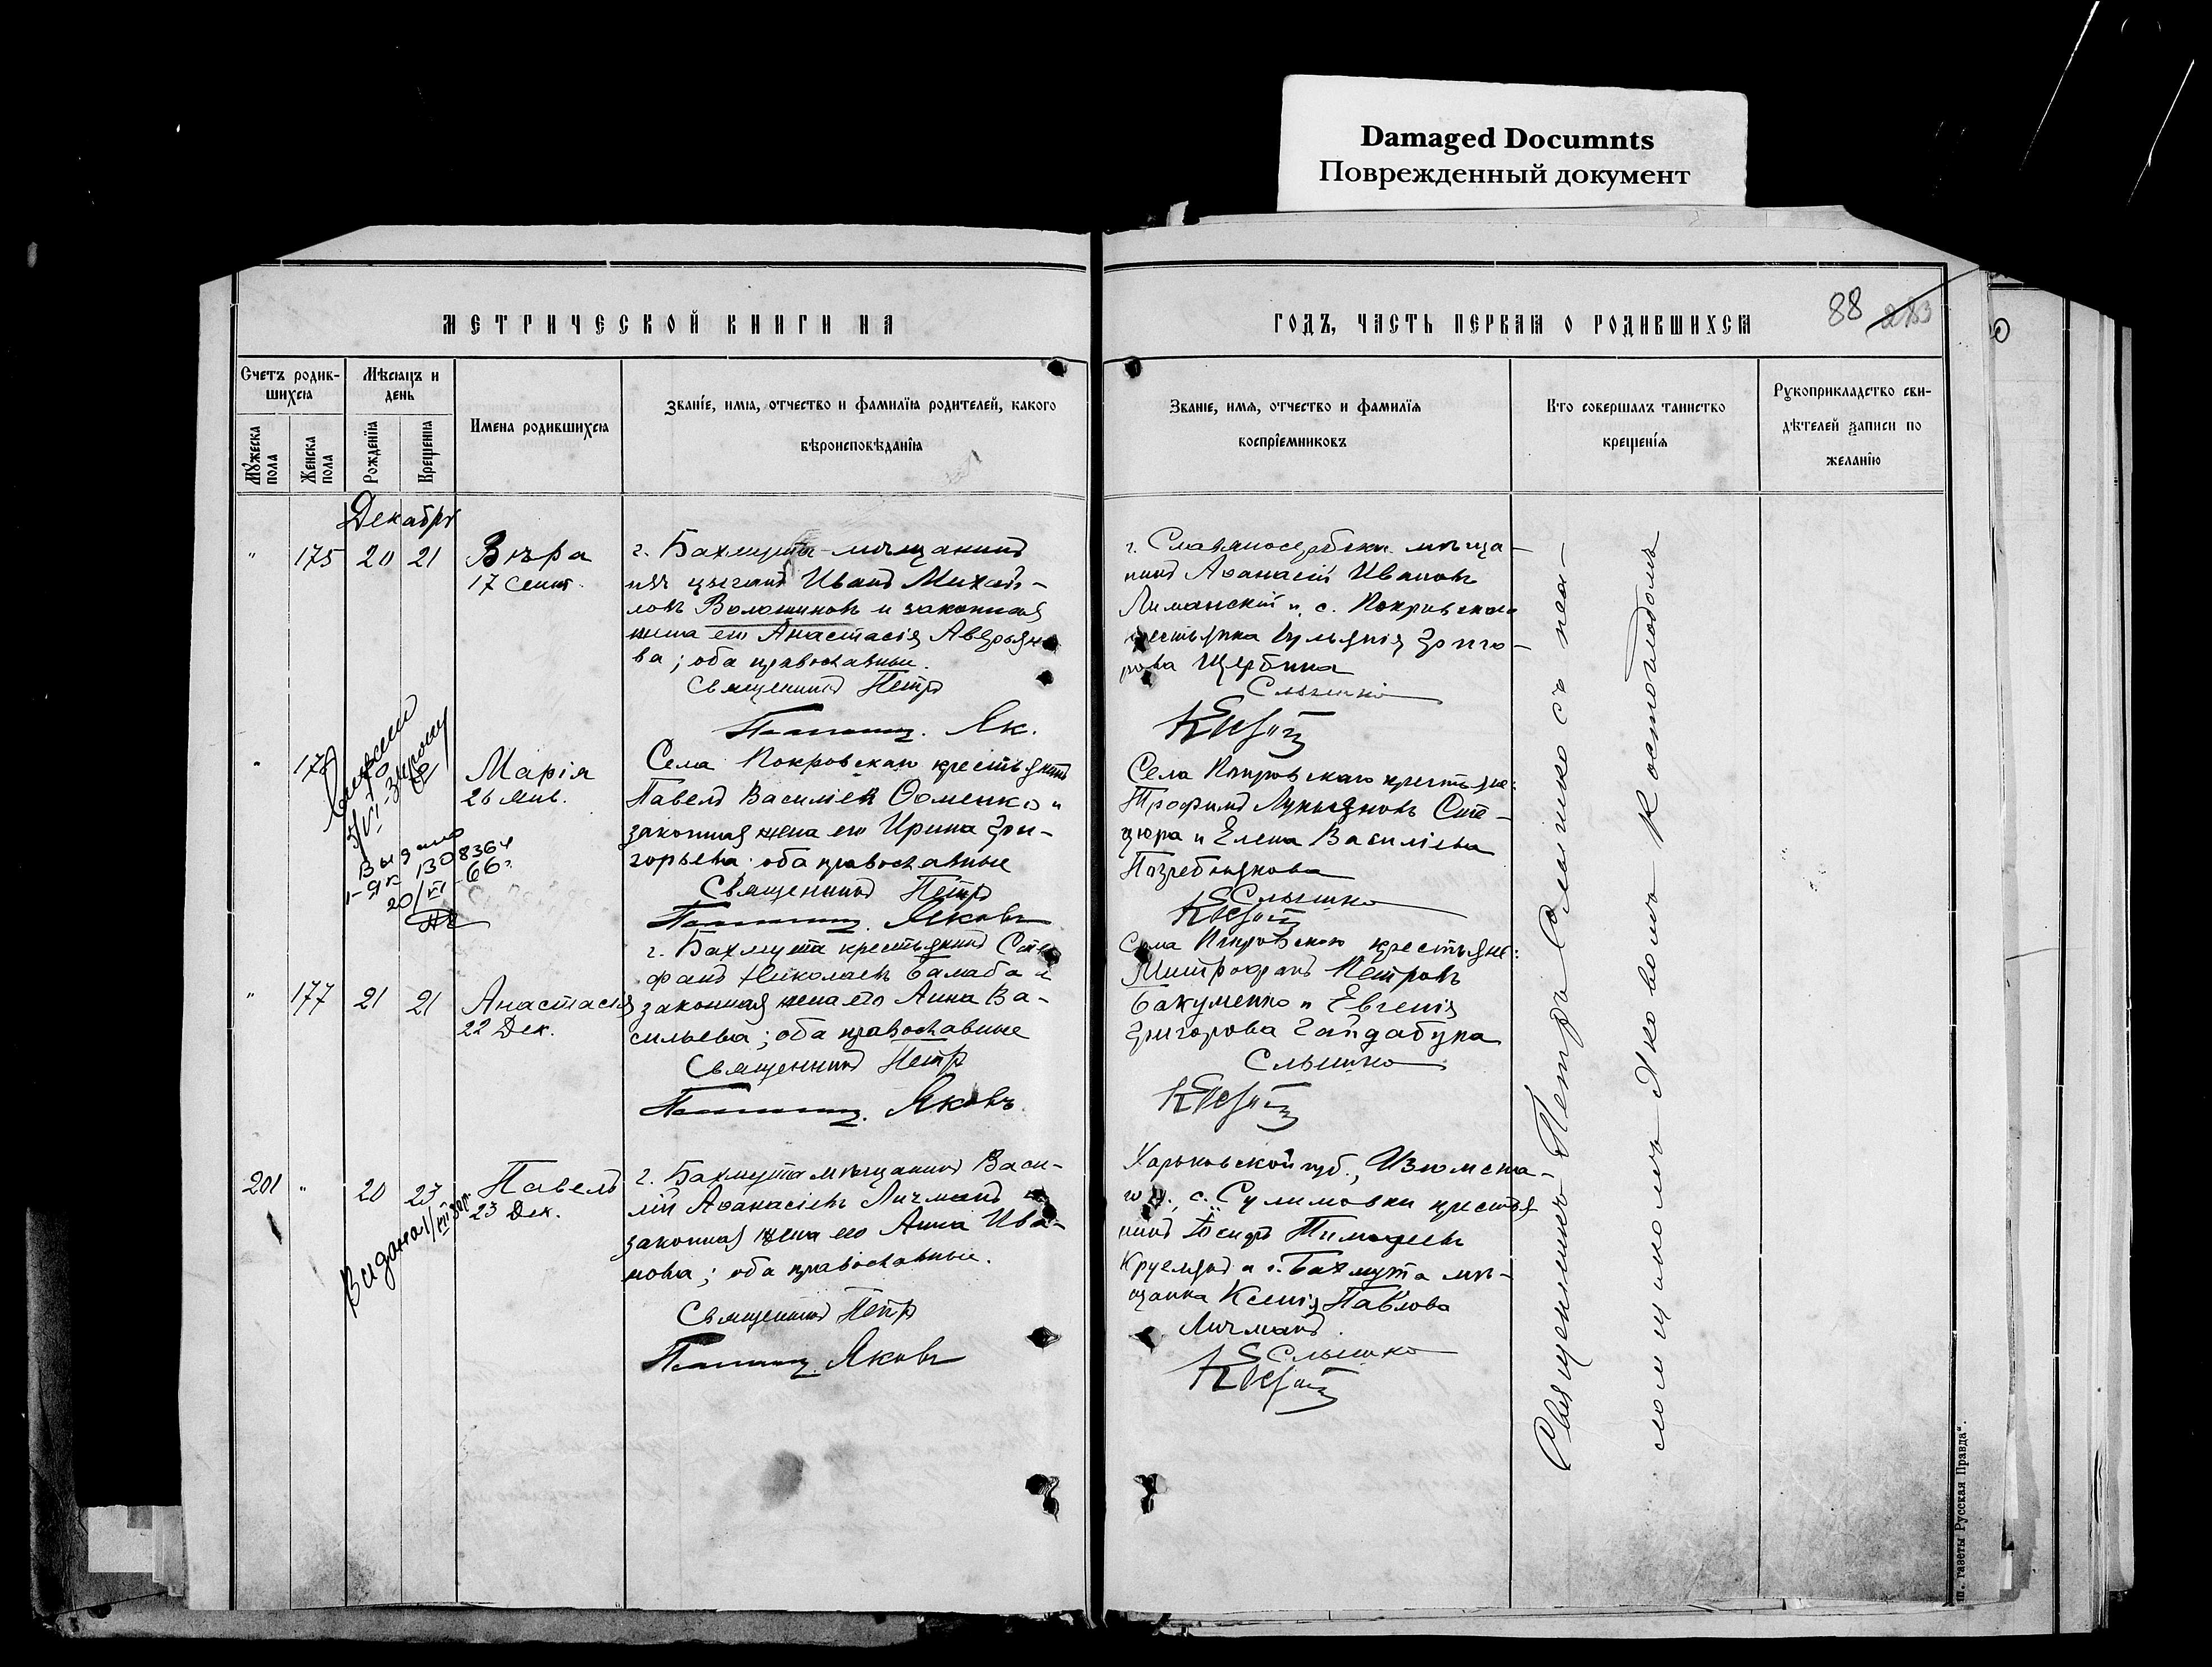 Damaged Documnts
Поврежденный документ
МЕТРИЧЕСКОЙ КНИГИ НА
ГОДЪ, ЧАСТЬ ПЕРВАЯ О РОДИВШИХСЯ
88 283
Счетъ родив-
шихся
Мужеска пола
Женска пола
Мѣсяцъ и
день
Рожденїя
Крещенія
Имена родившихся
Званіе, имя, отчество и фамилїя родителей, какого
вѣроисповѣданїя
Званіе, имя, отчество и фамилїя
воспрїемниковъ
Кто совершалъ таинство
крещенїя
Рукоприкладство сви-
дѣтелей записи по
желанїю
Декабрь
" 175 20 21 Вѣра
17 Сент.
г. Бахмута мѣщанинъ
изъ цыганъ Иванъ Михай-
ловъ Волошиновъ и законная
жена его Анастасія Аверьяно-
ва; оба православные.
Священникъ Петръ
Як.
г. Славяносербска мѣща-
нинъ Аѳанасій Ивановъ
Лиманскій и с. Покровскаго
крестьянка Іульянія Григо-
рова Щербина
Слышко
" 176
Марія
26 Янв.
Выдано
I-ЯК 1308364
20/VI-66г.
Села Покровскаго крестьянинъ
Павелъ Василіевъ Ѳоменко и
законная жена его Ирина Гри-
горьева; оба православные
Священникъ Петръ
Яковъ
Села Покровскаго крестьяне:
Трофимъ Лукьяновъ Сте-
цюра и Елена Василіева
Погребнякова
Слышко
" 177 21 21 Анастасія
22 Дек.
г. Бахмута крестьянинъ Сте-
фанъ Николаевъ Балаба и
законная жена его Анна Ва-
сильева; оба православные
Священникъ Петръ
Яковъ
Села Покровскаго крестьяне:
Митрофанъ Петровъ
Бакуменко и Евгенія
Григорова Гайдабука
Слышко
201 " 20 23 Павелъ
23 Дек.
Видано 1/VII 38р.
г. Бахмута мѣщанинъ Васи-
лій Аѳанасіевъ Личманъ и
законная жена его Анна Ива-
нова; оба православные.
Священникъ Петръ
Яковъ
Харьковской губ., Изюмска-
го у., с. Сулимовки крестья-
нинъ Іосифъ Тимоѳеевъ
и г. Бахмута мѣ-
щанка Ксенія Павлова
Личманъ.
Слышко
Священникъ Петръ Слышко съ пса-
ломщикомъ Яковомъ Костоглодомъ
п. газеты Русская Правда".